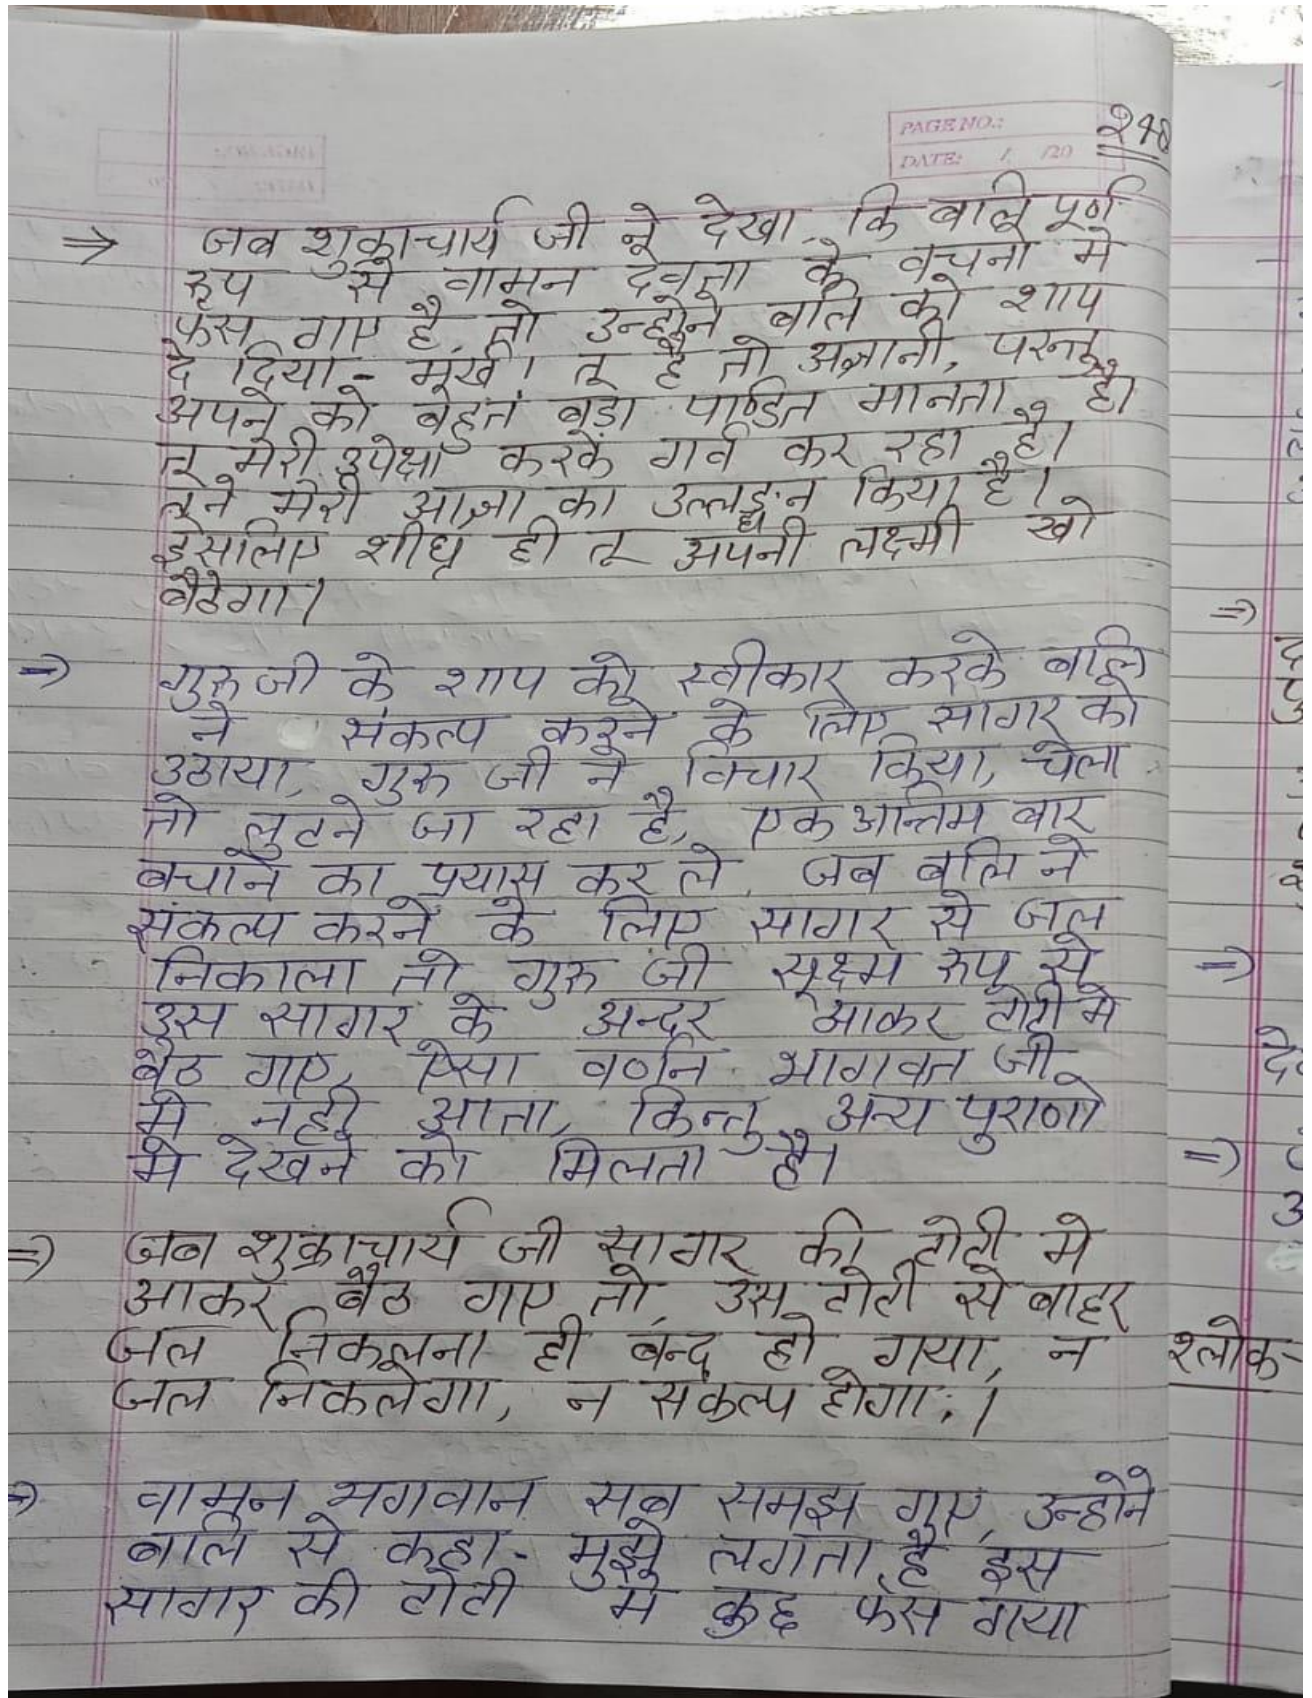 PAGE NO.:
DATE: / /20
२४८
⇒ जब शुक्राचार्य जी ने देखा कि बलि पूर्ण
रूप से वामन देवता के वचनो मे
फंस गए है तो उन्होने बलि को शाप
दे दिया- मूर्ख! तू है तो अज्ञानी, परन्तु
अपने को बहुत बड़ा पण्डित मानता है।
तू मेरी उपेक्षा करके गर्व कर रहा है।
तूने मेरी आज्ञा का उल्लङ्घन किया है।
इसलिए शीघ्र ही तू अपनी लक्ष्मी खो
बैठेगा।
⇒ गुरु जी के शाप को स्वीकार करके बलि
ने संकल्प करने के लिए सागर को
उठाया, गुरु जी ने विचार किया, चेला
तो लुटने जा रहा है, एक अन्तिम बार
बचाने का प्रयास कर ले, जब बलि ने
संकल्प करने के लिए सागर से जल
निकाला तो गुरु जी सूक्ष्म रूप से
उस सागर के अन्दर आकर टोटी मे
बैठ गए, ऐसा वर्णन भागवत जी
मे नही आता, किन्तु अन्य पुराणो
मे देखने को मिलता है।
⇒ जब शुक्राचार्य जी सागर की टोटी मे
आकर बैठ गए तो उस टोटी से बाहर
जल निकलना ही बन्द हो गया, न
जल निकलेगा, न संकल्प होगा।
⇒ वामन भगवान सब समझ गए, उन्होने
बलि से कहा- मुझे लगता है इस
सागर की टोटी मे कुछ फंस गया
⇒
⇒
⇒
श्लोक-